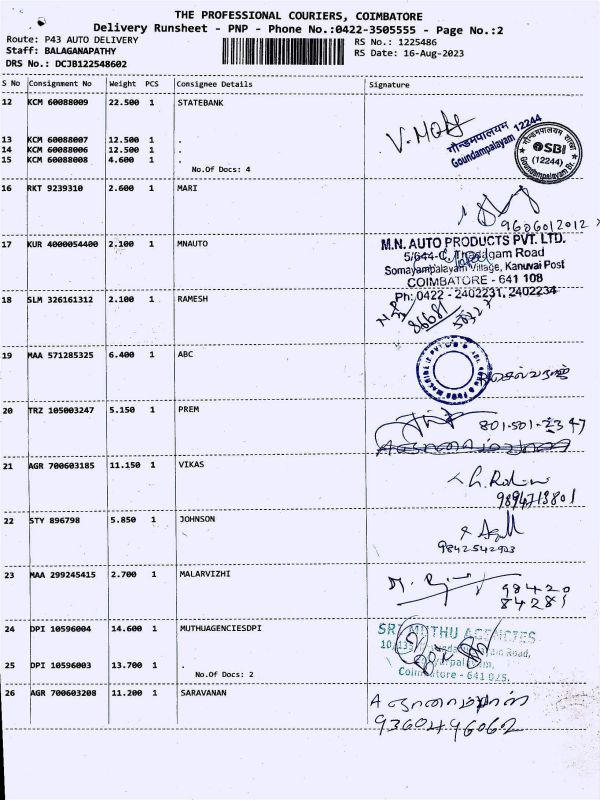 THE PROFESSIONAL COURIERS, COIMBATORE
Delivery Runsheet - PNP - Phone No.:0422-3505555 - Page No.:2
Route: P43 AUTO DELIVERY
RS No.: 1225486
Staff: BALAGANAPATHY
RS Date: 16-Aug-2023
DRS No.: DCJB122548602
S No Consignment No Weight PCS Consignee Details Signature
12 KCM 60088009 22.500 1 STATEBANK
गौन्डमपालयम 12244
Goundampalayam
SBI
(12244)
13 KCM 60088007 12.500 1 .
14 KCM 60088006 12.500 1 .
15 KCM 60088008 4.600 1 .
No.Of Docs: 4
16 RKT 9239310 2.600 1 MARI
9606012012
17 KUR 4000054400 2.100 1 MNAUTO
M.N. AUTO PRODUCTS PVT. LTD.
5/644-C, Thadagam Road
Somayampalayam Village, Kanuvai Post
COIMBATORE - 641 108
Ph: 0422 - 2402231, 2402234
18 SLM 326161312 2.100 1 RAMESH
19 MAA 571285325 6.400 1 ABC
20 TRZ 105003247 5.150 1 PREM
801-501-2347
21 AGR 700603185 11.150 1 VIKAS
9894713801
22 STY 896798 5.850 1 JOHNSON
9842542903
23 MAA 299245415 2.700 1 MALARVIZHI
98420
84281
24 DPI 10596004 14.600 1 MUTHUAGENCIESDPI
SRI MUTHU AGENCIES
Road,
Coimbatore - 641 025.
25 DPI 10596003 13.700 1 .
No.Of Docs: 2
26 AGR 700603208 11.200 1 SARAVANAN
9360496062